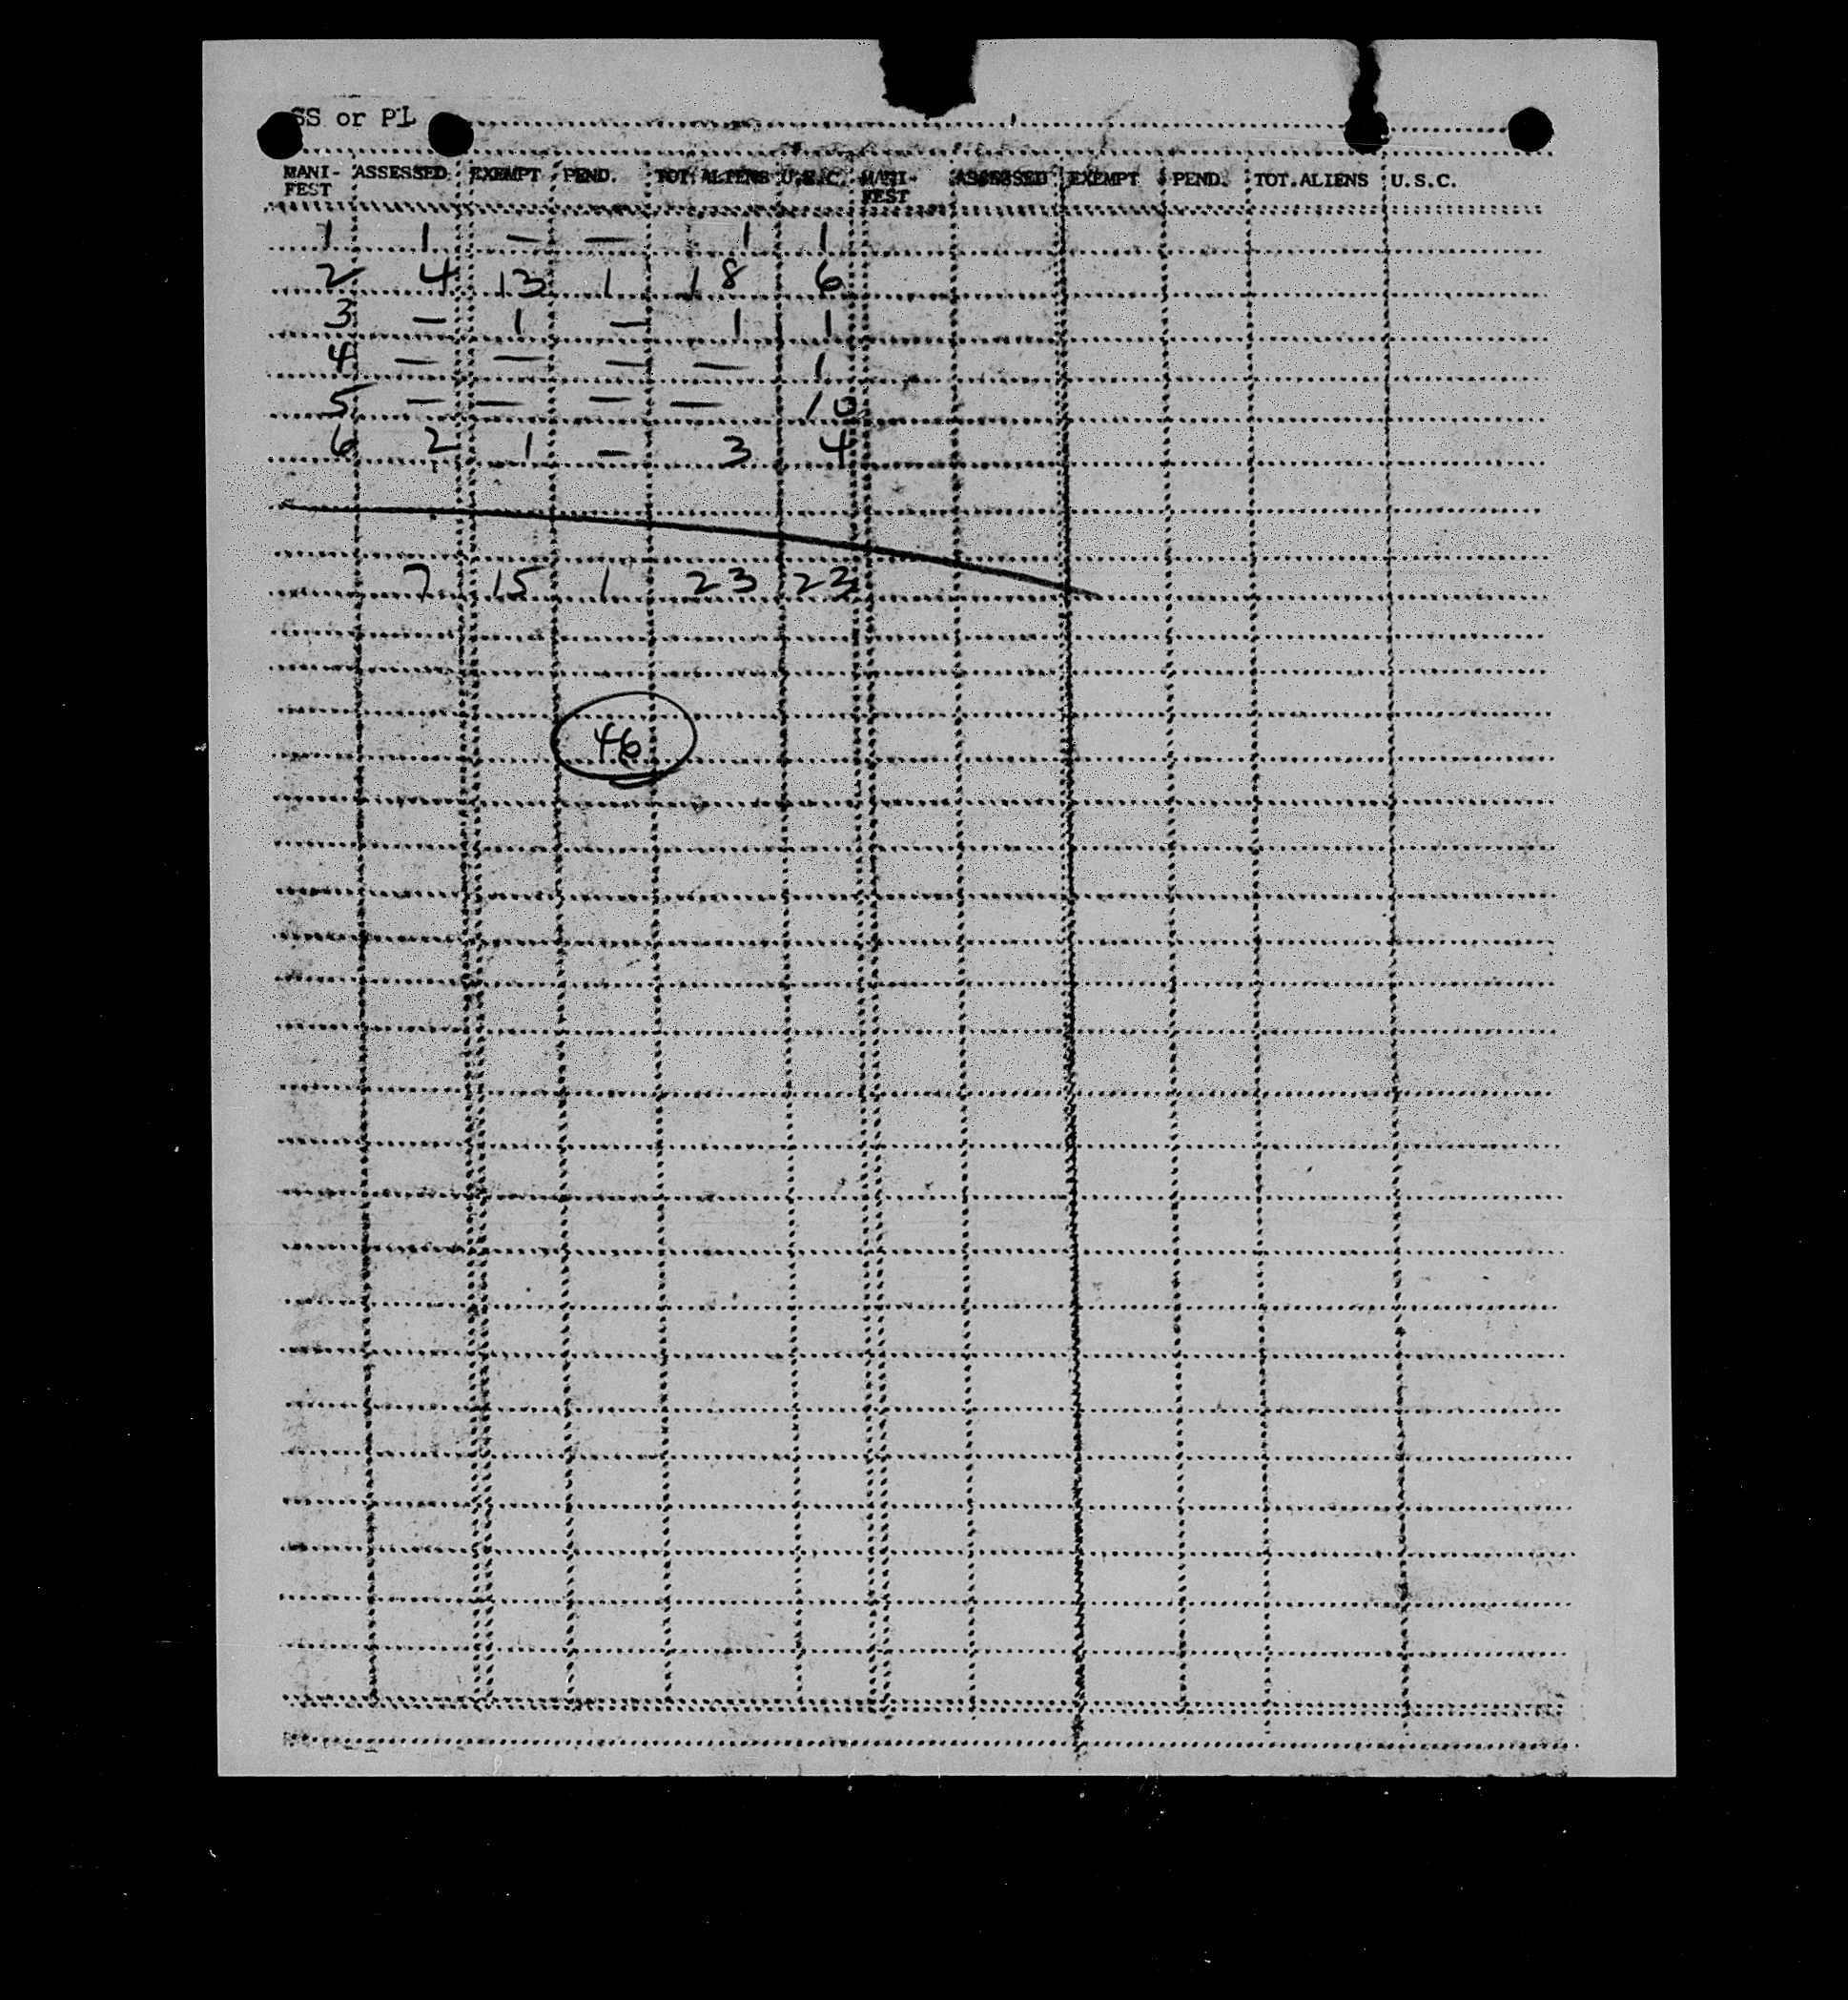 SS or PL
MANI- ASSESSED EXEMPT PEND. TOT. ALIENS U.S.C. MANI- ASSESSED EXEMPT PEND. TOT.ALIENS U.S.C.
FEST FEST
1 1 — — 1 1
2 4 13 1 18 6
3 — 1 — 1 1
4 — — — — 1
5 — — — — 10
6 2 1 — 3 4
7 15 1 23 23
46